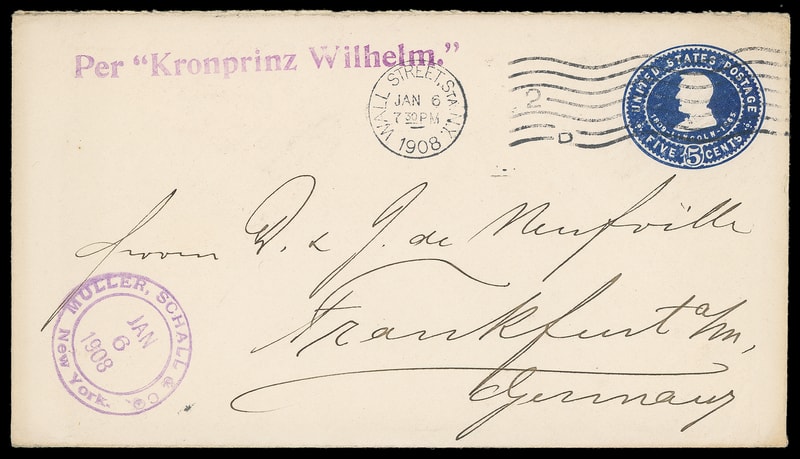 Per "Kronprinz Wilhelm."
WALL STREET, STA. N.Y.
JAN 6
7 30 PM
1908
2
D
UNITED STATES POSTAGE
1809-LINCOLN-1865
FIVE 5 CENTS
Herren D. & J. de Neufville
Frankfurt a/m,
Germany
MULLER, SCHALL & CO.
New York.
JAN
6
1908